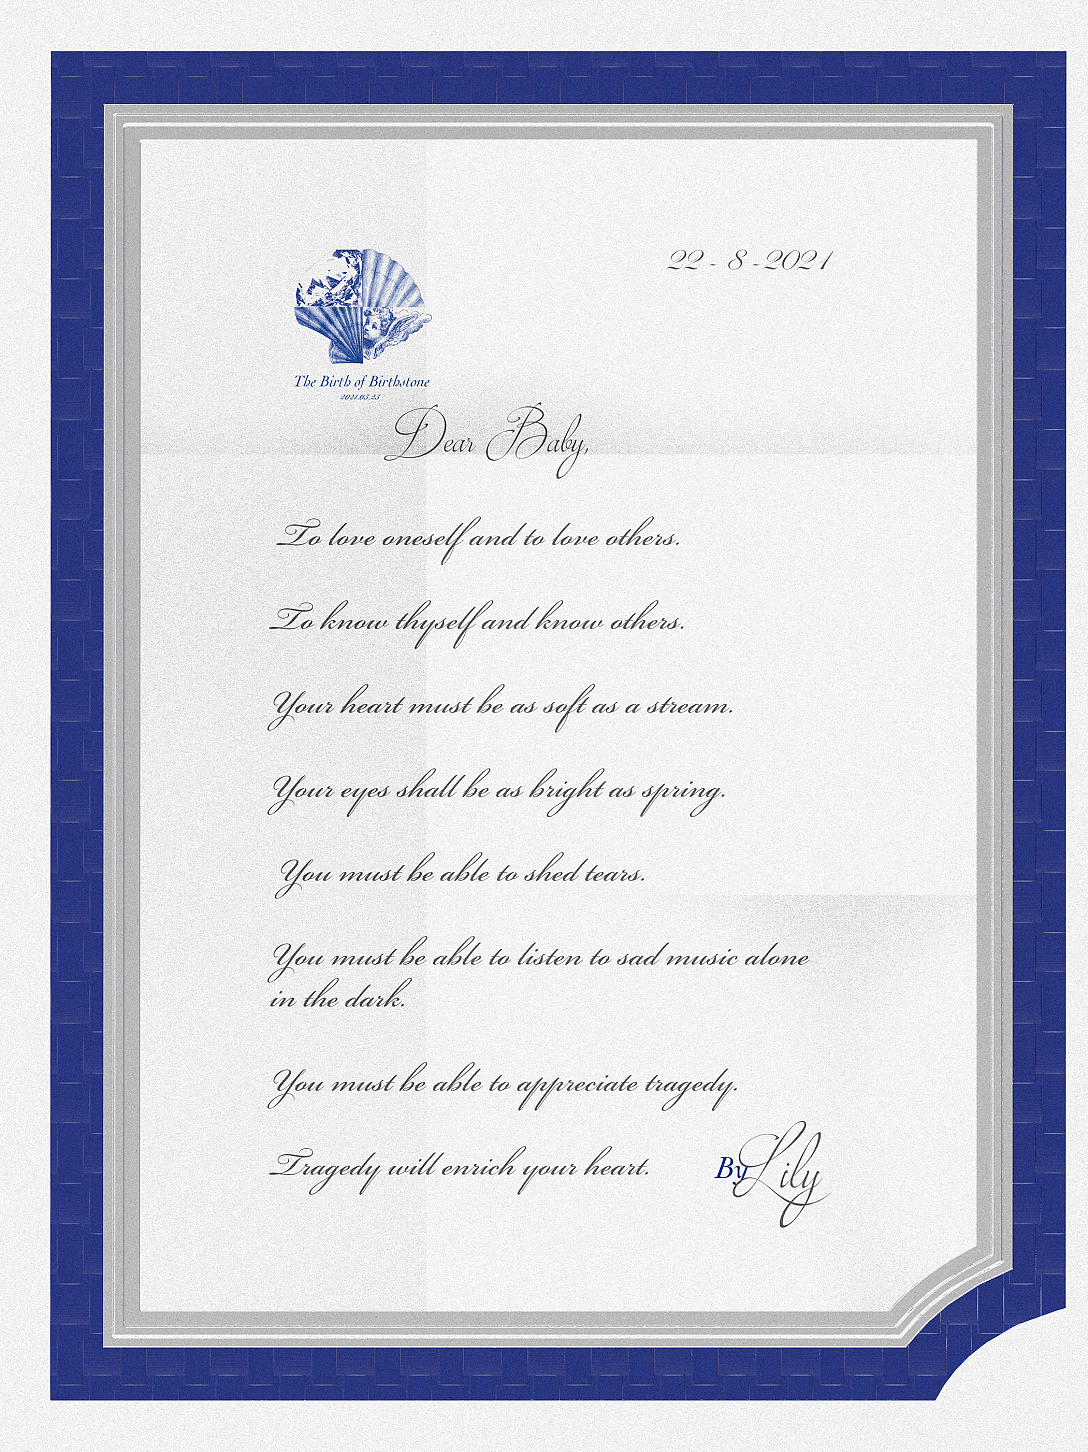 22 - 8 - 2021
The Birth of Birthstone
2021.03.25
Dear Baby,
To love oneself and to love others.
To know thyself and know others.
Your heart must be as soft as a stream.
Your eyes shall be as bright as spring.
You must be able to shed tears.
You must be able to listen to sad music alone
in the dark.
You must be able to appreciate tragedy.
Tragedy will enrich your heart.
By Lily